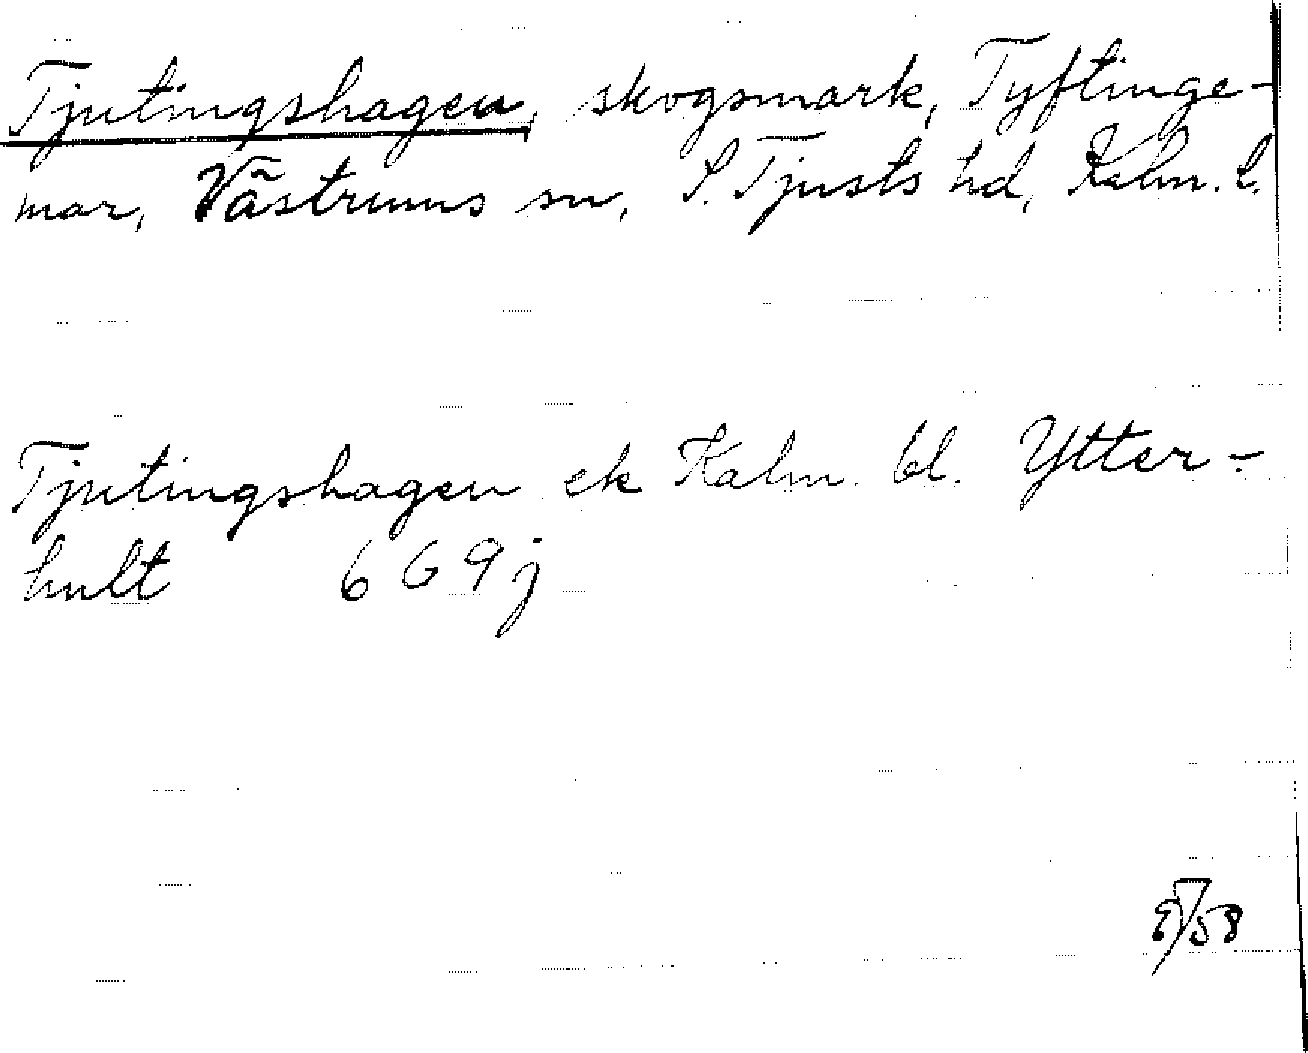 Tjutingshagen, skogsmark, Tyftinge-
mar, Västrums sn, S. Tjusts hd, Kalm. l.
Tjutingshagen ek Kalm. bl. Ytter-
hult 669j